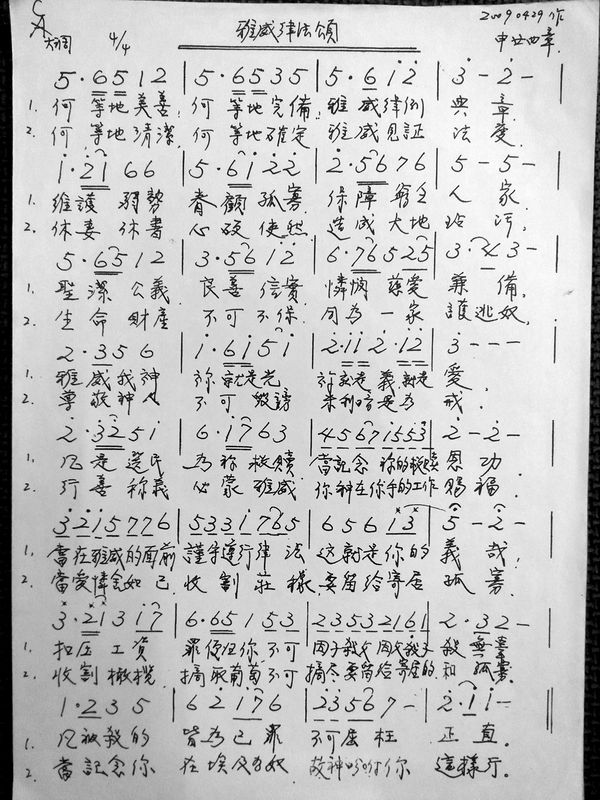 CA
大調 4/4 雅威律法頌 20090429作
申廿四章
5·6512 | 5·6535 | 5·612 | 3-2-
1. 何等地美善, 何等地完備, 雅威律例 典章
2. 何等地清潔 何等地確定 雅威見証 法度
1·2166 | 5·6122 | 2·5676 | 5-5-
1. 維護弱勢 眷顧孤寡 保障窮乏人家
2. 休妻休書 心硬使然 造成大地玷污,
5·6512 | 3·5612 | 6·76525 | 3·243-
1. 聖潔公義 良善信實 憐憫慈愛兼備,
2. 生命財產 不可不保 同為一家 護逃奴,
2·356 | 1·6151 | 2·112·12 | 3---
1. 雅威我神 祢就是光 祢就是義就是愛,
2. 尊敬神人 不可毀謗 米利暗是為戒,
2·3251 | 6·1763 | 45671553 | 2-2-
1. 凡是選民 為祢救贖 當記念祢的救贖恩功
2. 行善稱義 必蒙雅威 你神在你手的工作賜福.
3215776 | 5331765 | 65613 | 5-2-
1. 當在雅威的面前 謹守遵行律法 這就是你的義哉,
2. 當愛憐念如己 收割莊稼 要留給寄居孤寡
3·21317 | 6·65153 | 23532161 | 2·32-
1. 扣压工資 罪便在你不可 因子殺父因父殺子 殺無辜
2. 收割橄欖 摘取葡萄不可 摘尽要留給寄居的和孤寡
1·235 | 62176 | 23567- | 2·11-
1. 凡被殺的 皆為己罪 不可屈枉正直。
2. 當記念你 在埃及為奴 故神吩咐你這樣行。